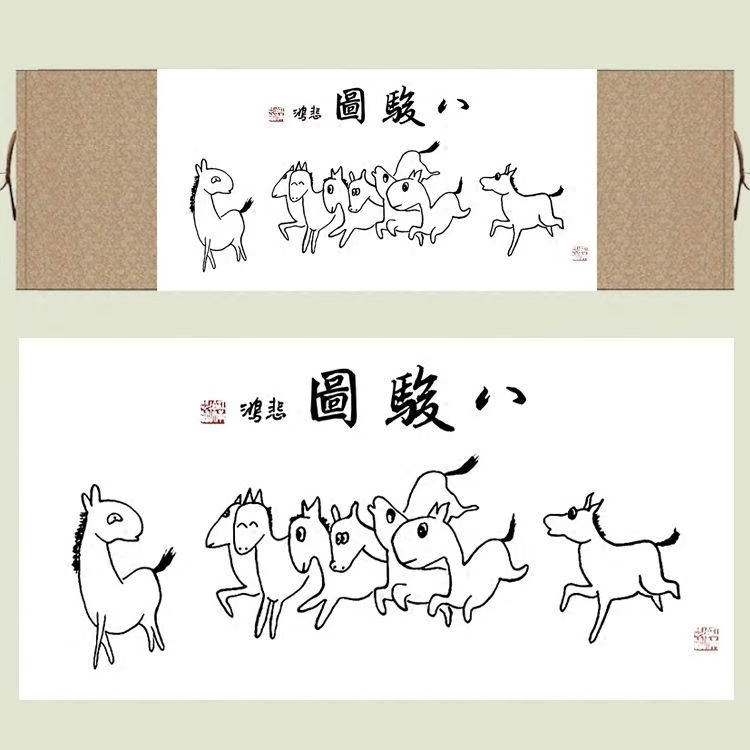 八駿圖 悲鴻
八駿圖 悲鴻